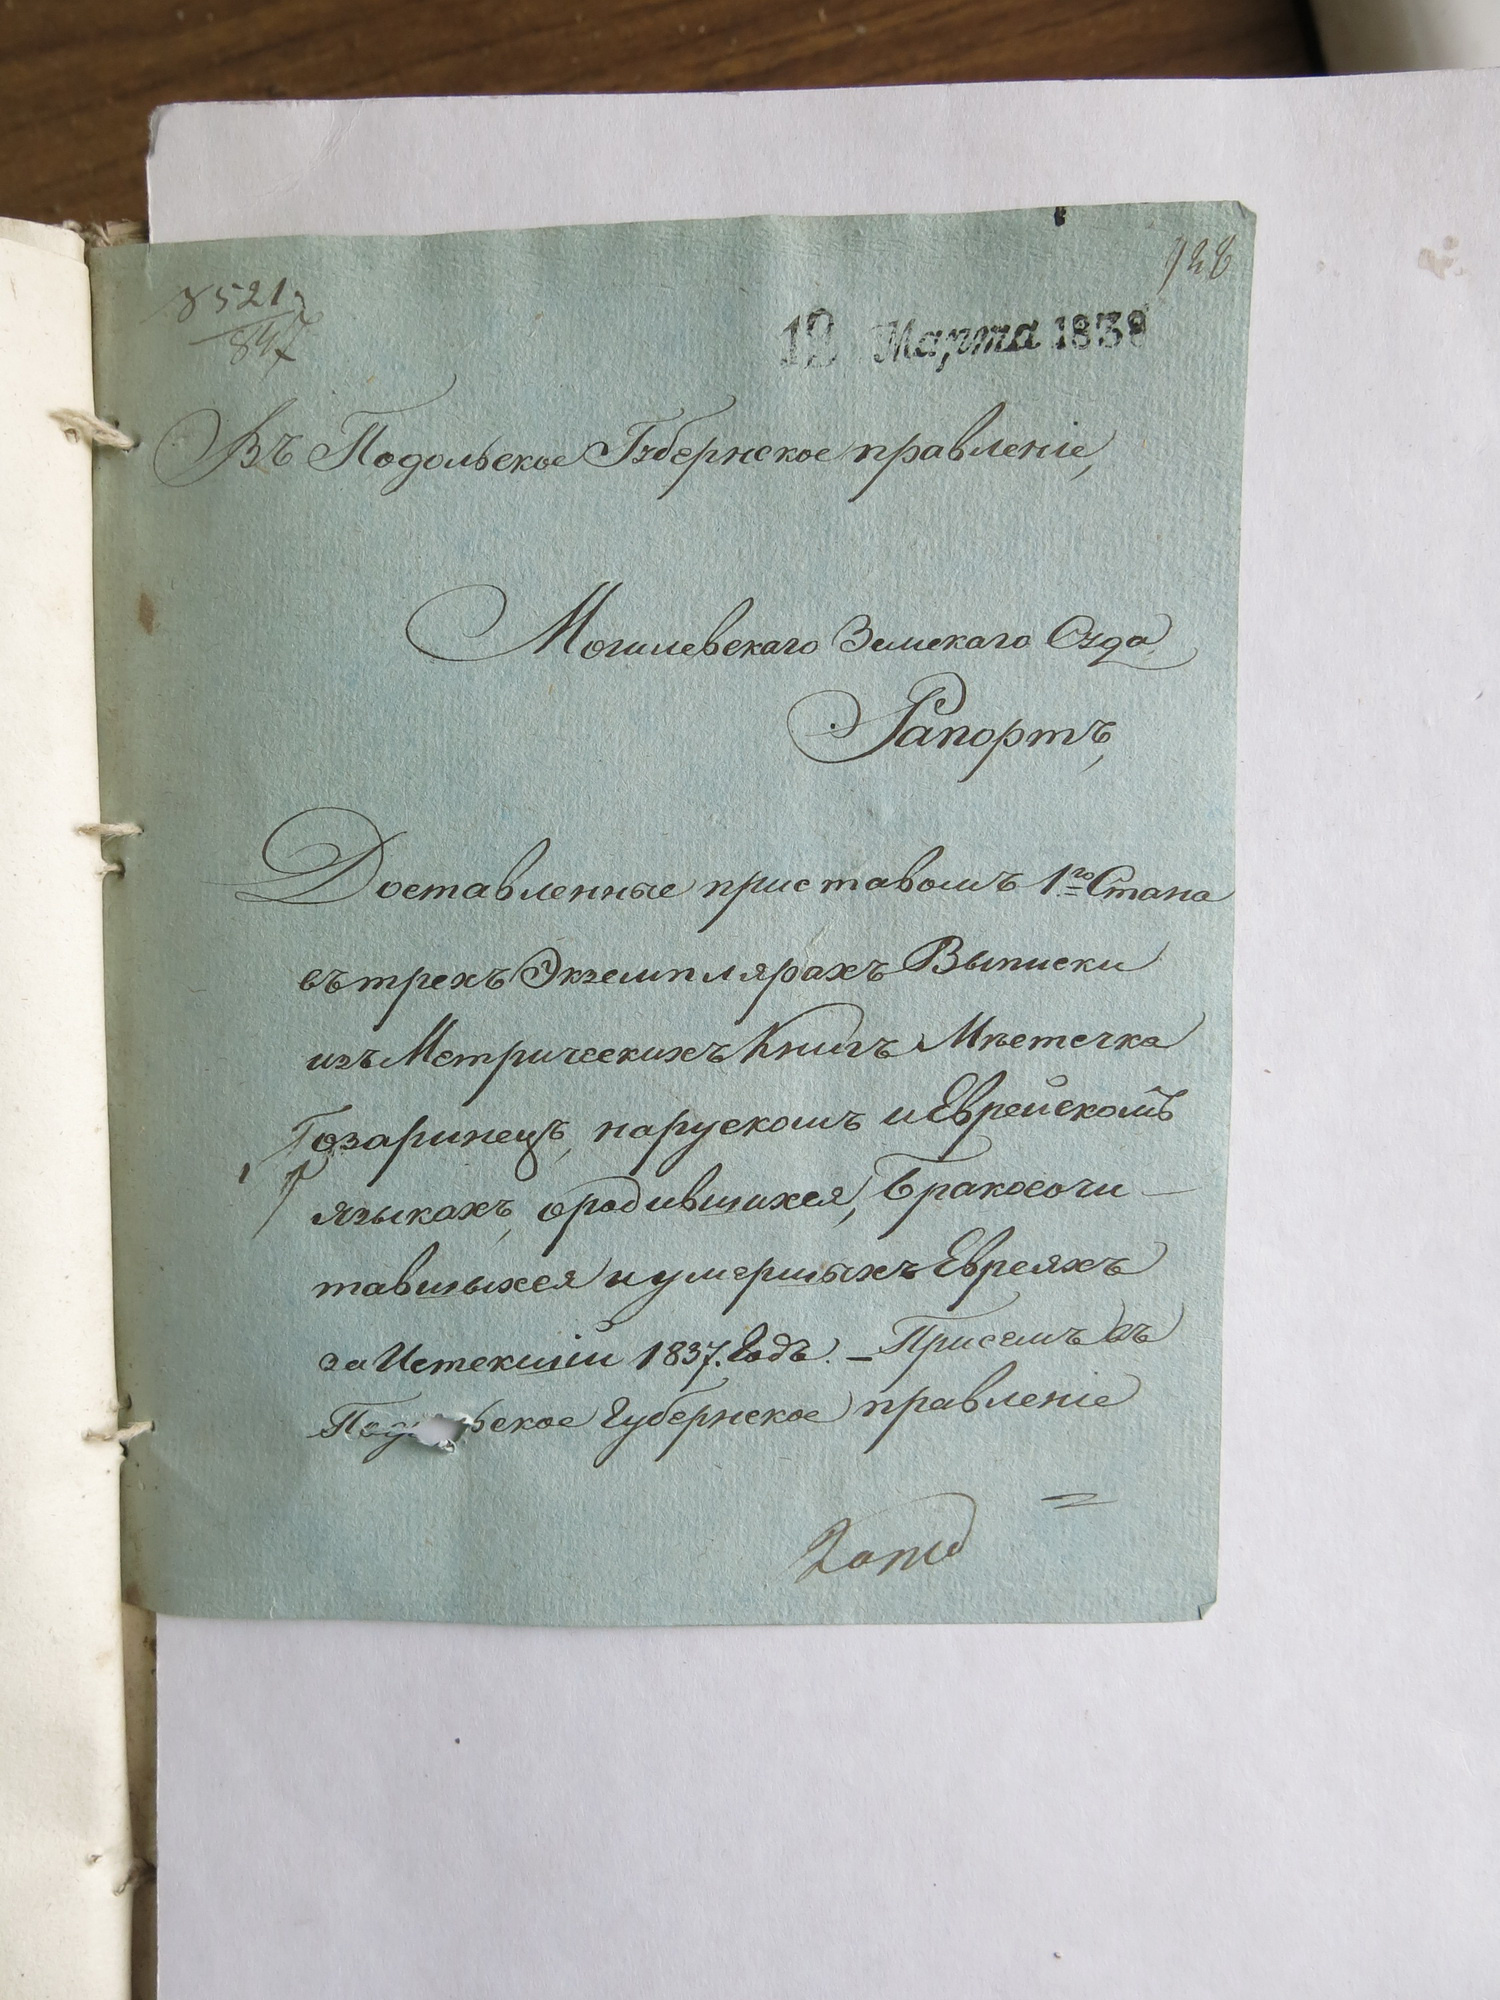 8521
847
928
12 Марта 1838
Въ Подольское Губернское правленіе,
Могилевскаго Земскаго Суда
Рапортъ,
Доставленные приставомъ 1го Стана
въ трехъ Экземплярахъ Выписки
изъ Метрическихъ Книгъ Мѣстечка
Озаринецъ, на рускомъ и Еврейскомъ
языкахъ, о родившихся, Бракосочи-
тавшыхся и умершыхъ Евреяхъ
за Истекшій 1837. Годъ. – Присемъ въ
Подольское Губернское правленіе